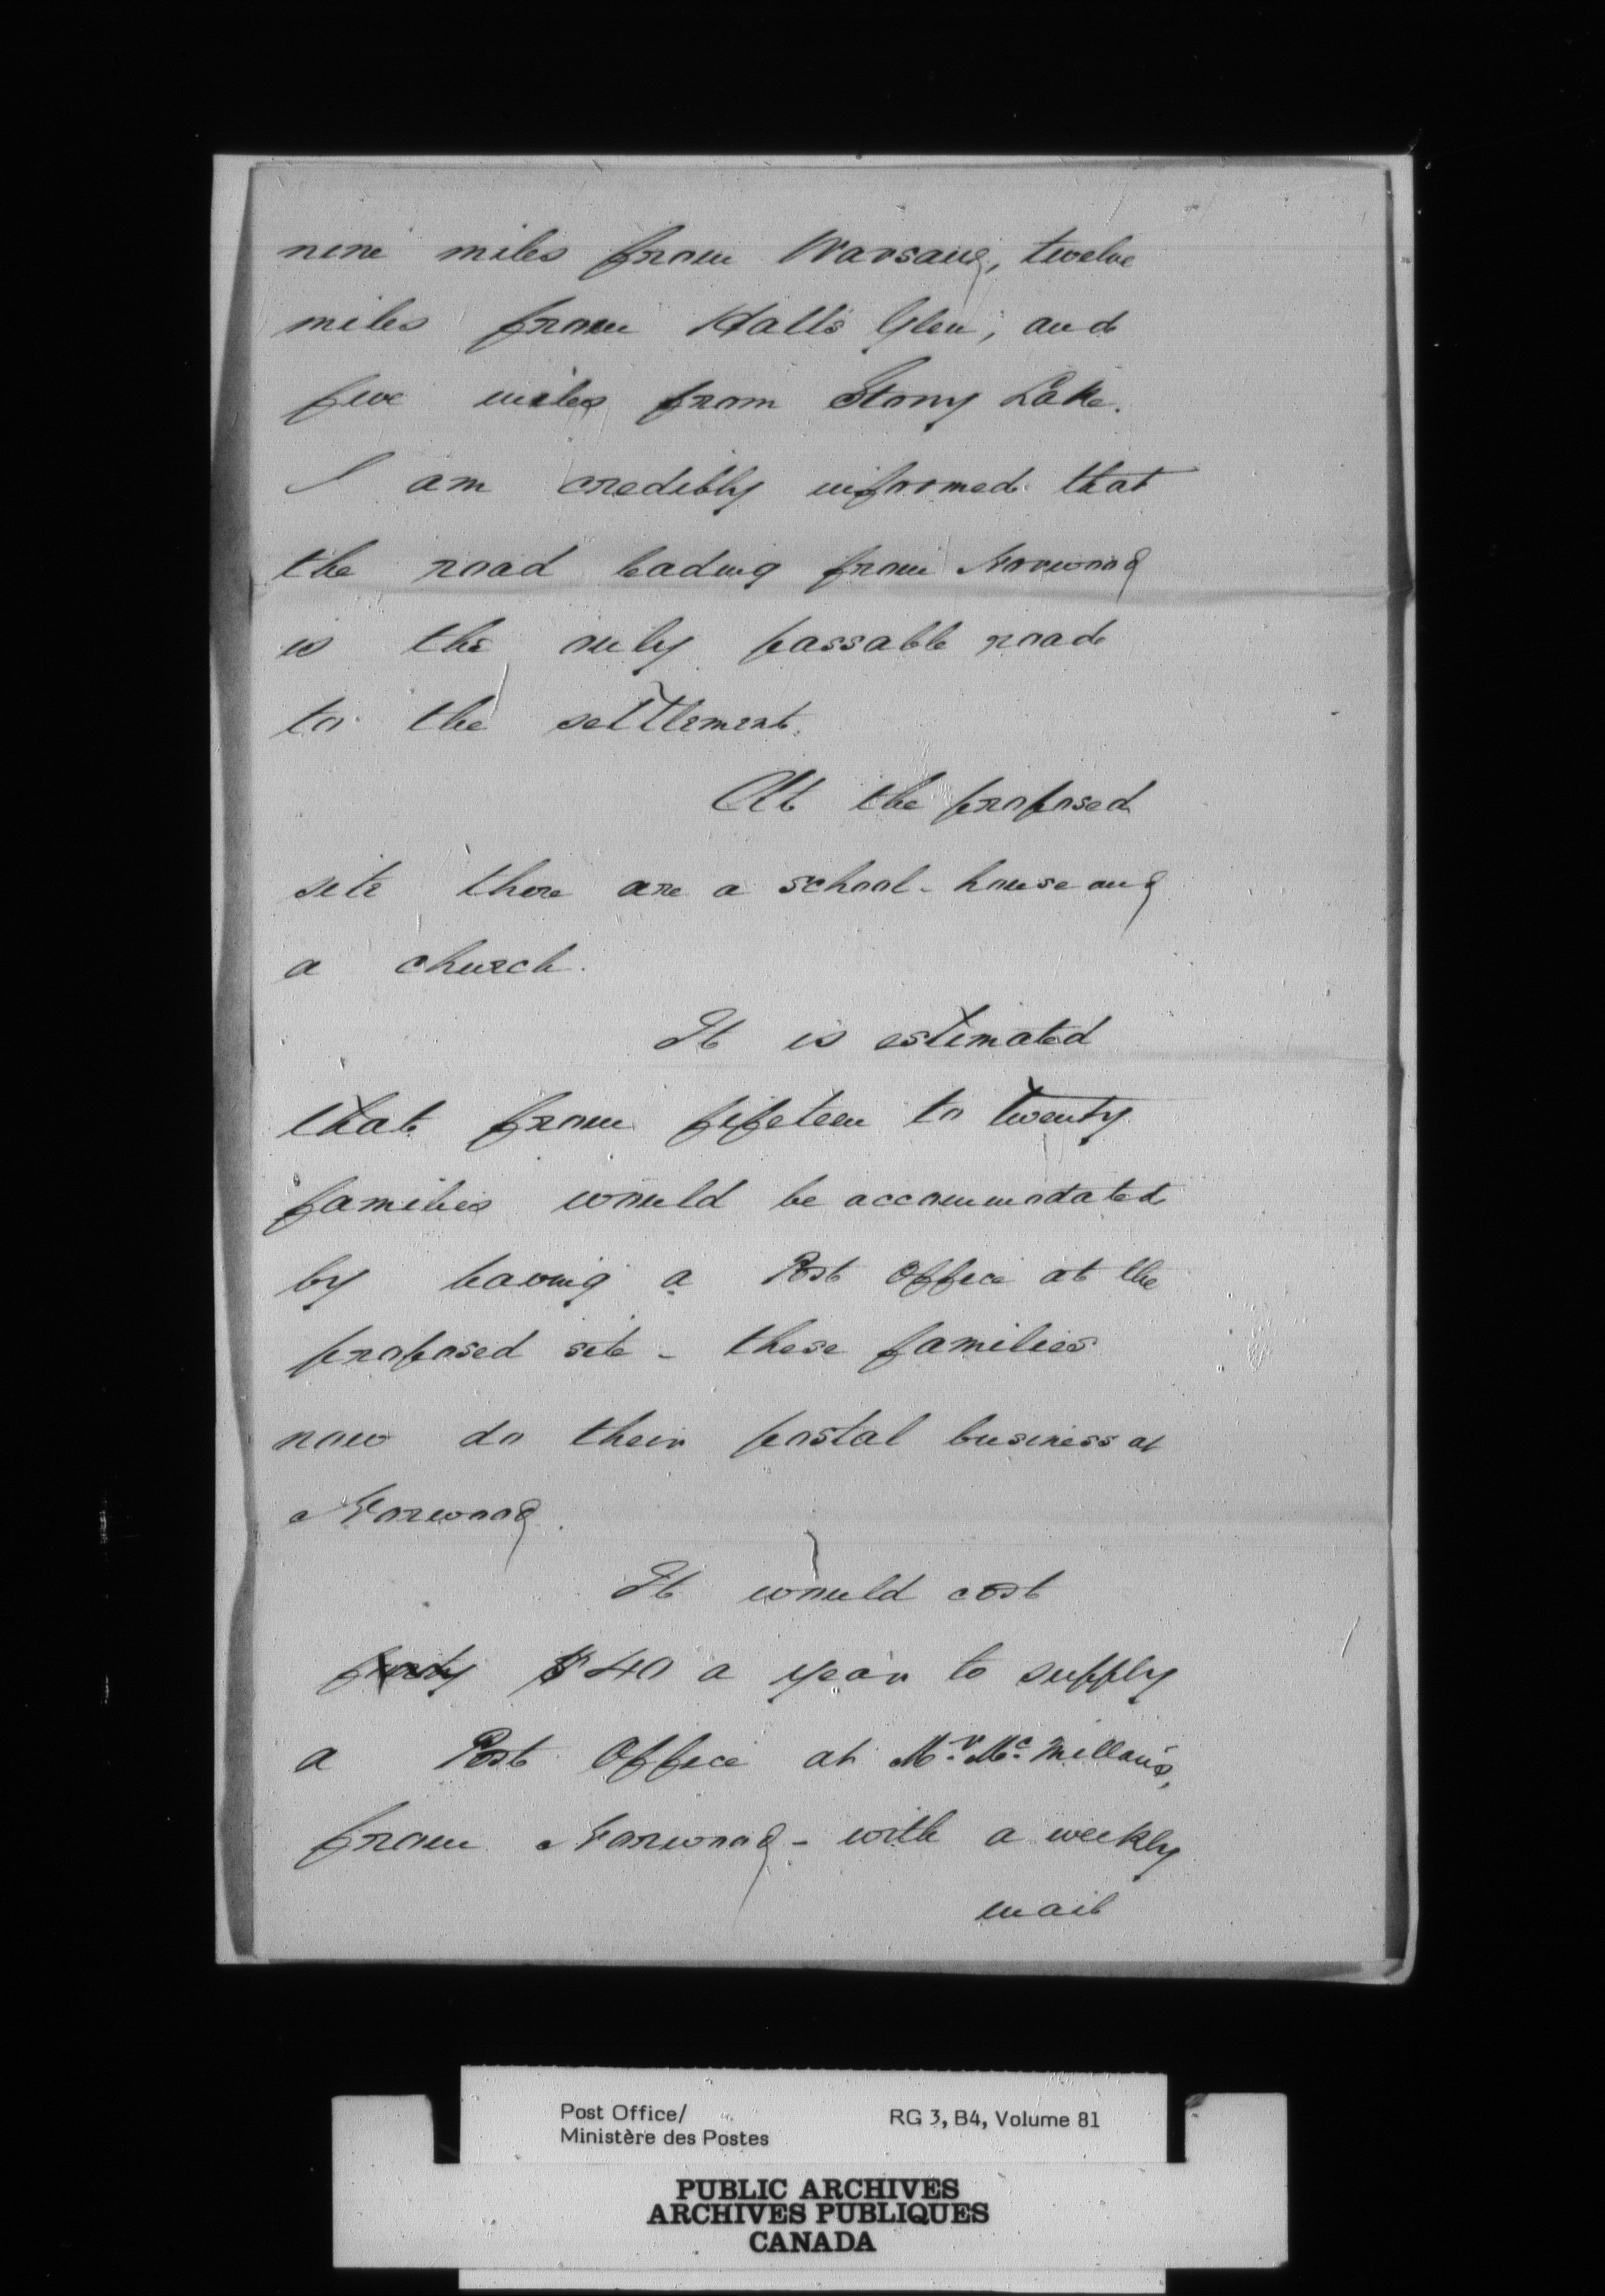 nine miles from Warsaw, twelve
miles from Halls Glen, and
five miles from Stony Lake.
I am credibly informed that
the road leading from Norwood
is the only passable road
to the settlement.
At the proposed
site there are a school-house and
a church.
It is estimated
that from fifteen to twenty
families would be accommodated
by having a Post Office at the
proposed site - these families
now do their postal business at
Norwood.
It would cost
forty $40 a year to supply
a Post Office at Mr. Mc.Millan's,
from Norwood - with a weekly
mail
Post Office/
Ministère des Postes
RG 3, B4, Volume 81
PUBLIC ARCHIVES
ARCHIVES PUBLIQUES
CANADA